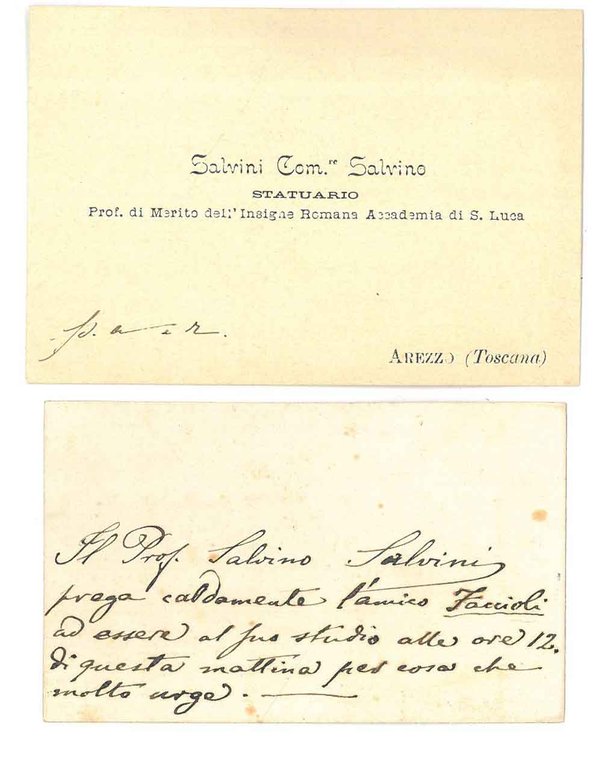 Salvini Com.re Salvino
STATUARIO
Prof. di Merito dell'Insigne Romana Accademia di S. Luca
AREZZO (Toscana)
Il Prof. Salvino Salvini
prega caldamente l'amico Faccioli
ad essere al suo studio alle ore 12.
di questa mattina per cosa che
molto urge. —